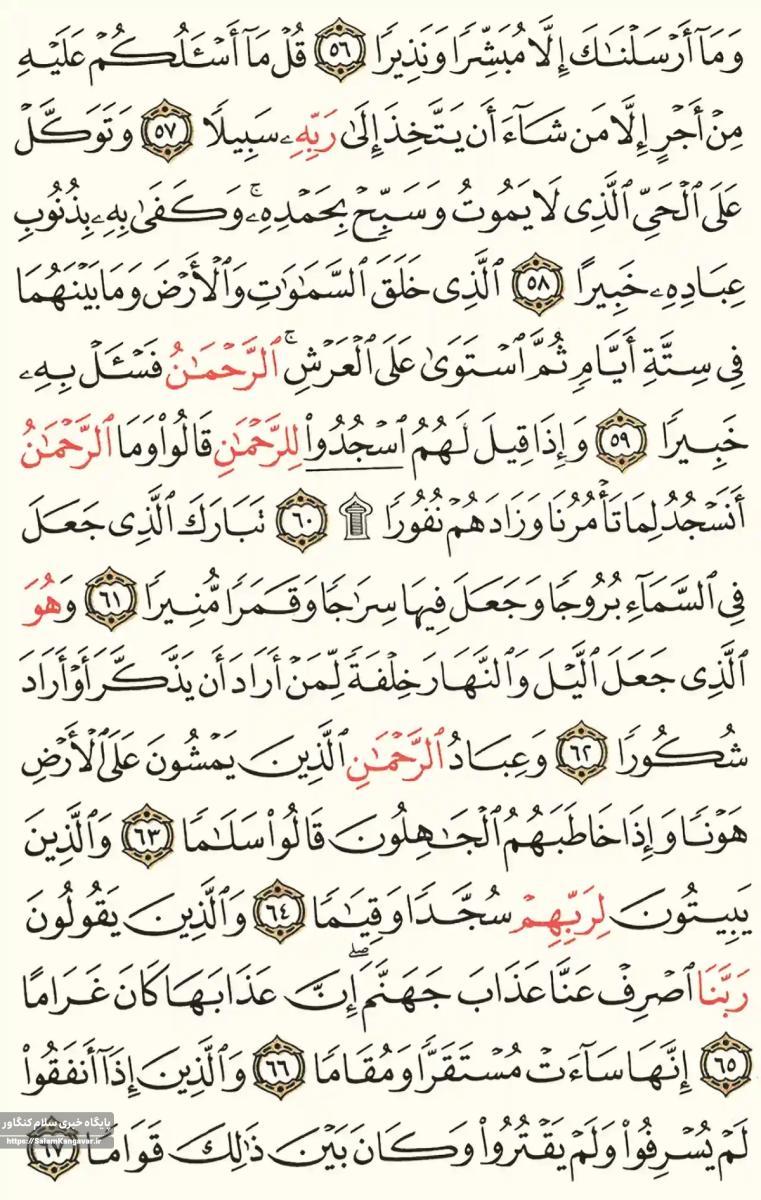 وَمَآ أَرْسَلْنَٰكَ إِلَّا مُبَشِّرًا وَنَذِيرًا ٥٦ قُلْ مَآ أَسْـَٔلُكُمْ عَلَيْهِ
مِنْ أَجْرٍ إِلَّا مَن شَآءَ أَن يَتَّخِذَ إِلَىٰ رَبِّهِۦ سَبِيلًا ٥٧ وَتَوَكَّلْ
عَلَى ٱلْحَىِّ ٱلَّذِى لَا يَمُوتُ وَسَبِّحْ بِحَمْدِهِۦ ۚ وَكَفَىٰ بِهِۦ بِذُنُوبِ
عِبَادِهِۦ خَبِيرًا ٥٨ ٱلَّذِى خَلَقَ ٱلسَّمَٰوَٰتِ وَٱلْأَرْضَ وَمَا بَيْنَهُمَا
فِى سِتَّةِ أَيَّامٍ ثُمَّ ٱسْتَوَىٰ عَلَى ٱلْعَرْشِ ۚ ٱلرَّحْمَٰنُ فَسْـَٔلْ بِهِۦ
خَبِيرًا ٥٩ وَإِذَا قِيلَ لَهُمُ ٱسْجُدُوا۟ لِلرَّحْمَٰنِ قَالُوا۟ وَمَا ٱلرَّحْمَٰنُ
أَنَسْجُدُ لِمَا تَأْمُرُنَا وَزَادَهُمْ نُفُورًا ۩ ٦٠ تَبَارَكَ ٱلَّذِى جَعَلَ
فِى ٱلسَّمَآءِ بُرُوجًا وَجَعَلَ فِيهَا سِرَٰجًا وَقَمَرًا مُّنِيرًا ٦١ وَهُوَ
ٱلَّذِى جَعَلَ ٱلَّيْلَ وَٱلنَّهَارَ خِلْفَةً لِّمَنْ أَرَادَ أَن يَذَّكَّرَ أَوْ أَرَادَ
شُكُورًا ٦٢ وَعِبَادُ ٱلرَّحْمَٰنِ ٱلَّذِينَ يَمْشُونَ عَلَى ٱلْأَرْضِ
هَوْنًا وَإِذَا خَاطَبَهُمُ ٱلْجَٰهِلُونَ قَالُوا۟ سَلَٰمًا ٦٣ وَٱلَّذِينَ
يَبِيتُونَ لِرَبِّهِمْ سُجَّدًا وَقِيَٰمًا ٦٤ وَٱلَّذِينَ يَقُولُونَ
رَبَّنَا ٱصْرِفْ عَنَّا عَذَابَ جَهَنَّمَ ۖ إِنَّ عَذَابَهَا كَانَ غَرَامًا
٦٥ إِنَّهَا سَآءَتْ مُسْتَقَرًّا وَمُقَامًا ٦٦ وَٱلَّذِينَ إِذَآ أَنفَقُوا۟
لَمْ يُسْرِفُوا۟ وَلَمْ يَقْتُرُوا۟ وَكَانَ بَيْنَ ذَٰلِكَ قَوَامًا ٦٧
پایگاه خبری سلام کنگاور
https://SalamKangavar.ir